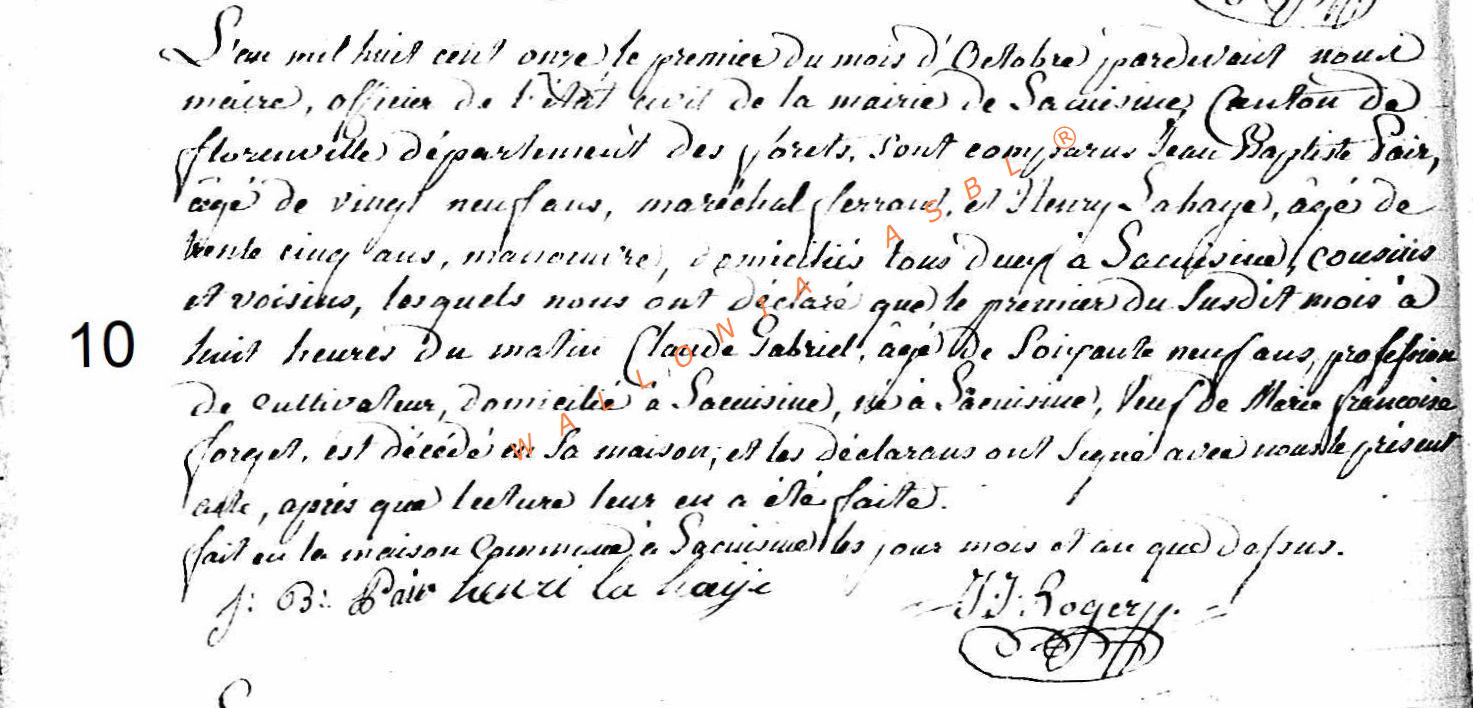 L'an mil huit cent onze le premier du mois d'Octobre pardevant nous
maire, officier de l'état civil de la mairie de Lacuisine, Canton de
florenville département des forets, sont comparus Jean Baptiste Pair,
âgé de vingt neuf ans, maréchal ferrant, et Henry Lahaye, âgé de
trente cinq ans, manouvre, domiciliés tous deux à Lacuisine, cousins
et voisins, lesquels nous ont déclaré que le premier du susdit mois à
10
huit heures du matin Claude Gabriel, âgé de soixante neuf ans, profession
de cultivateur, domicilié à Lacuisine, né à Lacuisine, veuf de Marie francoise
forget, est décédé en sa maison, et les déclarans ont signé avec nous le présent
acte, après que lecture leur en a été faite.
fait en la maison Commune à Lacuisine les jour mois et an que dessus.
J: B: Pair henri la haije J J Rogery
WALLONIA ASBL ®